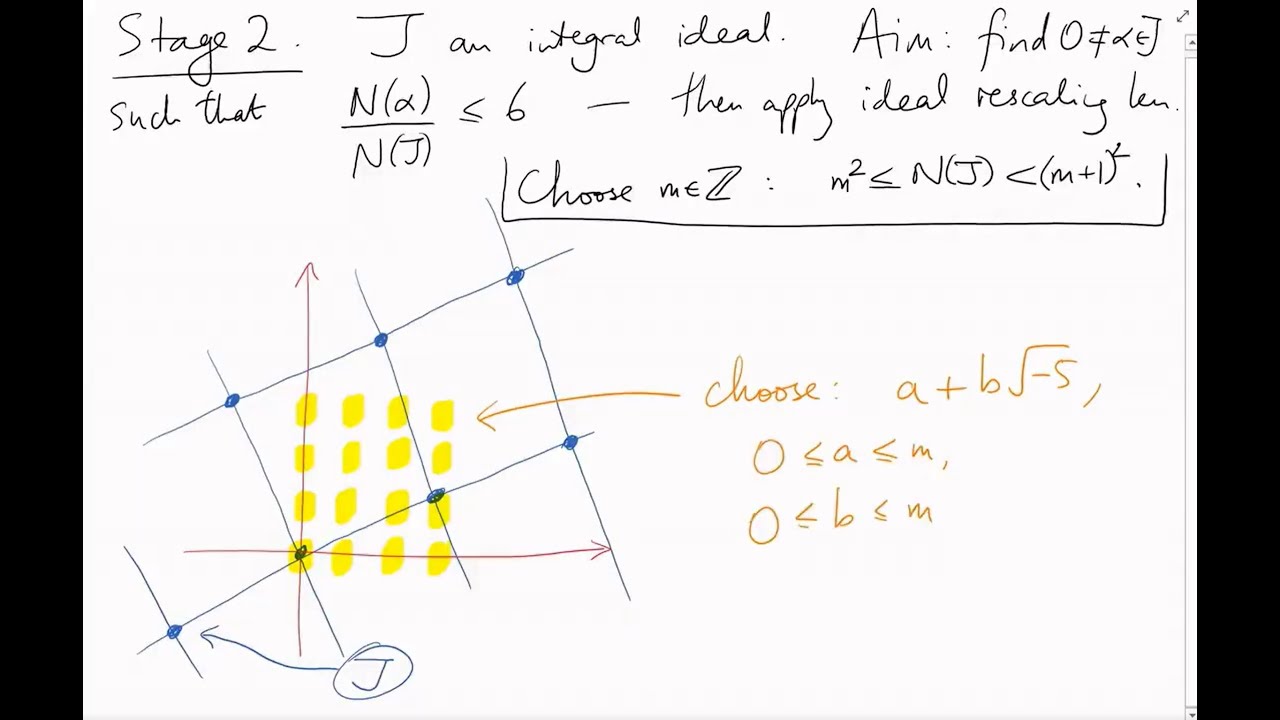 Stage 2. J an integral ideal. Aim: find 0≠α∈J
such that N(α)/N(J) ≤ 6 — then apply ideal rescaling lem.
Choose m∈ℤ: m² ≤ N(J) < (m+1)².
choose: a + b√-5,
0 ≤ a ≤ m,
0 ≤ b ≤ m
J